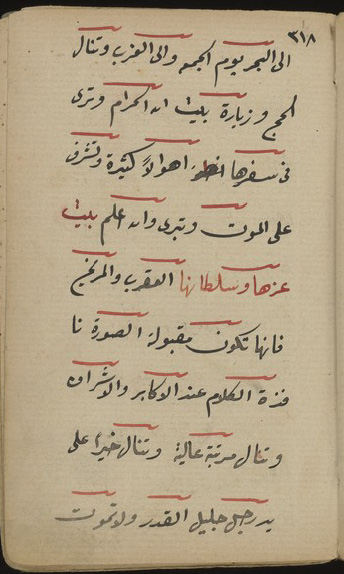 ٣١٨
الى البحر يوم الجمعه والى الغرب وتنال
الحج وزيارة بيت الله الحرام وترى
فى سفرها اهوالاً كثيرة وتشرف
على الموت وتبرى والله اعلم بيت
عزها وسلطانها العقرب والمريخ
فانها تكون مقبولة الصورة نا
فذة الكلام عند الاكابر والاشراف
وتنال مرتبة عالية وتنال خيراً على
يد رجل جليل القدر ولا تموت